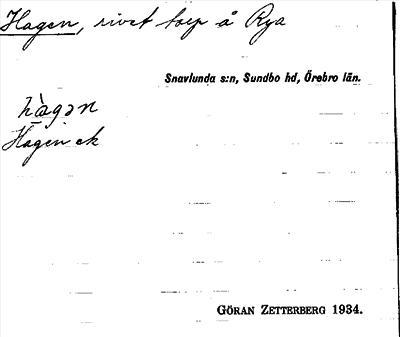 Hagen, rivet torp å Rya
Snavlunda s:n, Sundbo hd, Örebro län.
hàgən
Hagen ek
GÖRAN ZETTERBERG 1934.